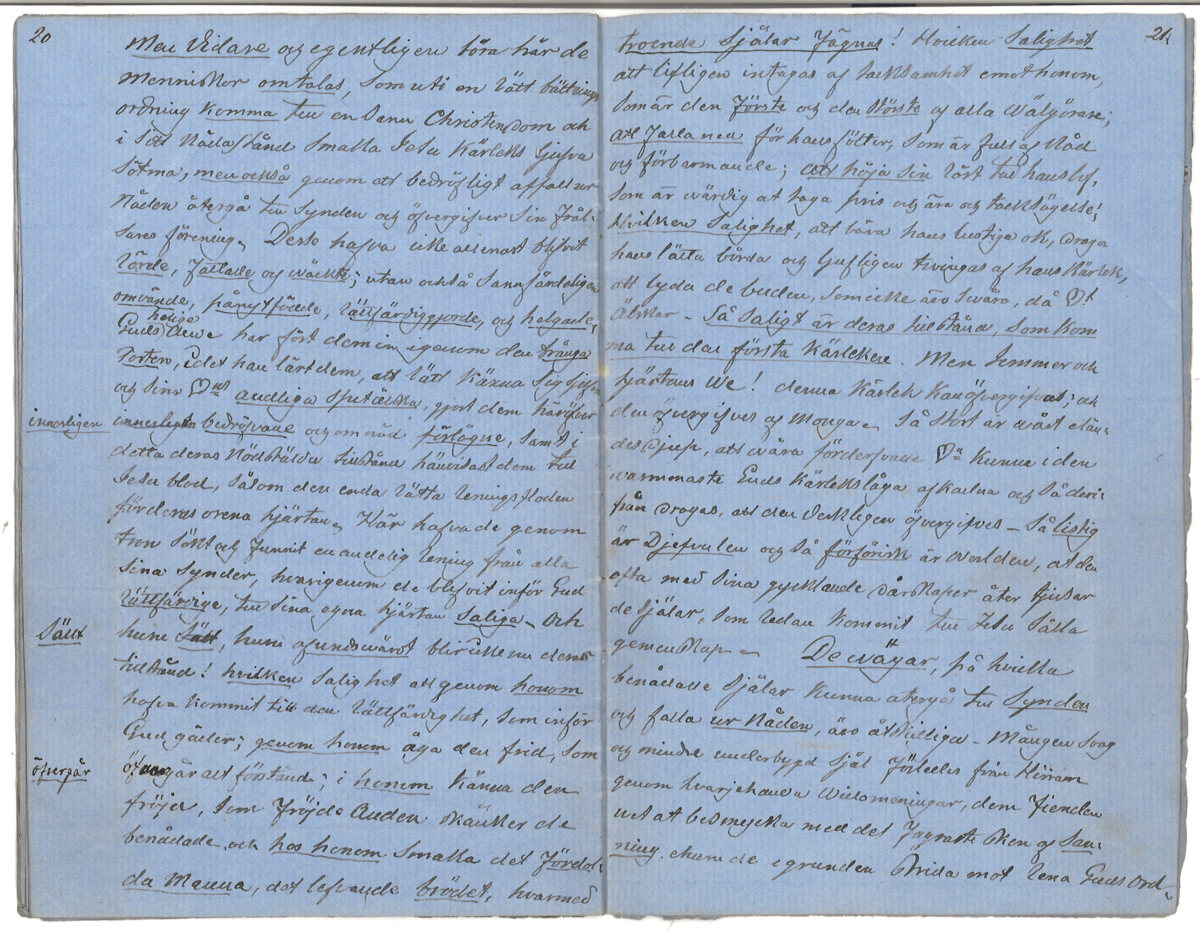 20
Men Vidare och egentligen böra här de
Menniskor omtalas, som uti en rätt bättrings
ordning komma till en Sann Christendom och
i sitt Nådastånd Smakla Jesu Kärleks ljufva
Sötma, men också genom ett bedröfligt affall ur
Nåden återgå till Synden och öfvergifver Sin Fräl-
Sares förening. Desse hafva icke allenast blifvit
rörde, kallade og wäckte; utan också Sannfärdeligen
omvände, pånyttfödde, rättfärdiggjorde, och helgade,
Guds helige Ande har fört dem in igenom den trånga
Porten, i det han lärt dem, att rätt Känna Sig Sjelfva
och Sina ♡ns andliga Spetälska, gjort dem häröfver
innerligen innerligen bedröfvade och om nåd förlägne, Samt i
detta deras Nödstälda tillstånd hänvisat dem till
Jesu blod, Såsom den enda rätta reningsfloden
för deras orena hjärtan. Här hafva de genom
tron Sökt och funnit en andelig rening från alla
Sina Synder, hvarigenom de blifvit inför Gud
rättfärdige, till Sina egna hjärtan Saliga - Och
Sällt huru Sällt, huru afundswärdt blir icke nu deras
tillstånd! hvilken Salighet att genom honom
hafva kommit till den rättfärdighet, Som inför
Gud gäller; genom honom äga den frid, Som
öfvergår öfvergår alt förstånd; i honom Känna den
fröjd, Som Fröjde Anden Skänker de
benådade och hos honom Smaka det Fördol-
da Manna, det lefvande brödet, hvarmed
21
troende Själar Fägnas! Hvilken Salighet
att lifligen intagas af tacksamhet emot honom,
Som är den Förste och den Störste af alla Wälgörare;
att Falla ned för hans fötter, Som är full af Nåd
og förbarmande; att höja Sin röst till hans lof,
Som är wärdig att taga pris och ära och tacksägelse!
Hvilken Salighet, att bära hans lustiga ok, draga
hans lätta börda och ljufligen twingas af hans Kärlek,
att lyda de buden, Som icke äro Swåra, då ♡t
älskar - Så Saligt är deras tillstånd, Som Kom
ma till den första Kärleken. Men Jemmer och
hjärtans We! denna Kärlek Kan öfvergifvas; och
den öfvergifves af Många. Så Stort är wårt elän-
des Djup, att wåra förderfvade ♡n Kunna i den
warmmaste Guds Kärlekslåga afkallna och Så deri-
från dragas, att den Verkligen öfvergifves - Så listig
är Djefvulen och Så förförisk är Werlden, at den
ofta med Sina gycklande dårskaper åter tjusar
de Själar, Som redan Kommit till Jesu Sälla
gemenskap - De wägar, på hvilka
benådade Själar Kunna återgå till Synden
och falla ur Nåden, äro åtskilliga - Mången Swag
og mindre underbygd Själ Förledes från Herran
genom hvarjehanda Willomeningar, dem Fienden
wet at besmycka med det Fagraste Sken af San-
ning, ehuru de i grunden Strida mot rena Guds Ord